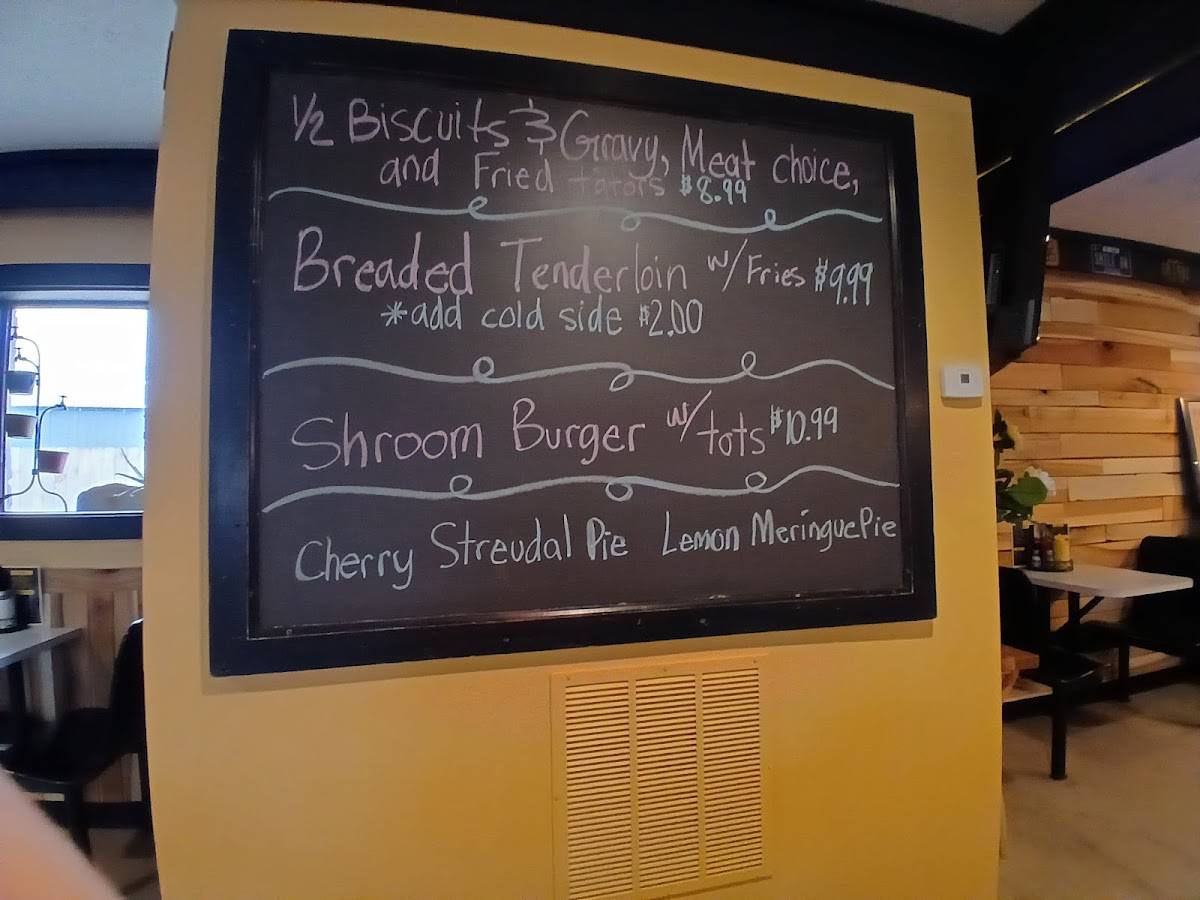 1/2 Biscuits & Gravy, Meat choice,
and Fried tators $8.99
Breaded Tenderloin w/ Fries $9.99
*add cold side $2.00
Shroom Burger w/ tots $10.99
Cherry Streudal Pie Lemon Meringue Pie